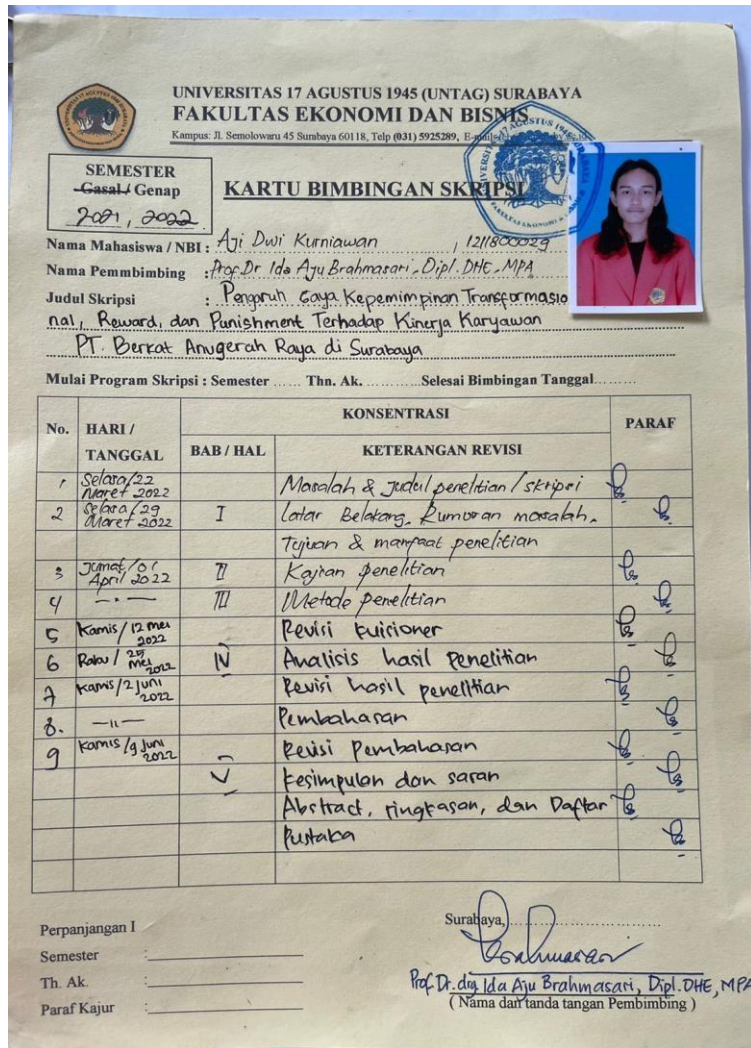 UNIVERSITAS 17 AGUSTUS 1945 (UNTAG) SURABAYA
FAKULTAS EKONOMI DAN BISNIS
Kampus: Jl. Semolowaru 45 Surabaya 60118, Telp (031) 5925289,
SEMESTER
Gasal / Genap
2021, 2022
KARTU BIMBINGAN SKRIPSI
Nama Mahasiswa / NBI : Aji Dwi Kurniawan / 1211800029
Nama Pemmbimbing : Prof. Dr Ida Aju Brahmasari, Dipl. DHE, MPA
Judul Skripsi : Pengaruh Gaya Kepemimpinan Transformasio
nal, Reward, dan Punishment Terhadap Kinerja Karyawan
PT. Berkat Anugerah Raya di Surabaya
Mulai Program Skripsi : Semester ...... Thn. Ak. ............Selesai Bimbingan Tanggal.........
No. HARI / TANGGAL KONSENTRASI PARAF
BAB / HAL KETERANGAN REVISI
1 Selasa/22 Maret 2022 Masalah & Judul penelitian / skripsi
2 Selasa/29 Maret 2022 I Latar Belakang, Rumusan masalah,
Tujuan & manfaat penelitian
3 Jumat/01 April 2022 II Kajian penelitian
4 — " — III Metode penelitian
5 Kamis/12 mei 2022 Revisi kuisioner
6 Rabu/25 mei 2022 IV Analisis hasil Penelitian
7 Kamis/2 Juni 2022 Revisi hasil penelitian
8. — 11 — Pembahasan
9 Kamis/9 Juni 2022 Revisi Pembahasan
V kesimpulan dan saran
Abstract, ringkasan, dan Daftar
Pustaka
Perpanjangan I
Semester :
Th. Ak. :
Paraf Kajur :
Surabaya,
Prof. Dr. drg Ida Aju Brahmasari, Dipl. DHE, MPA
( Nama dan tanda tangan Pembimbing )